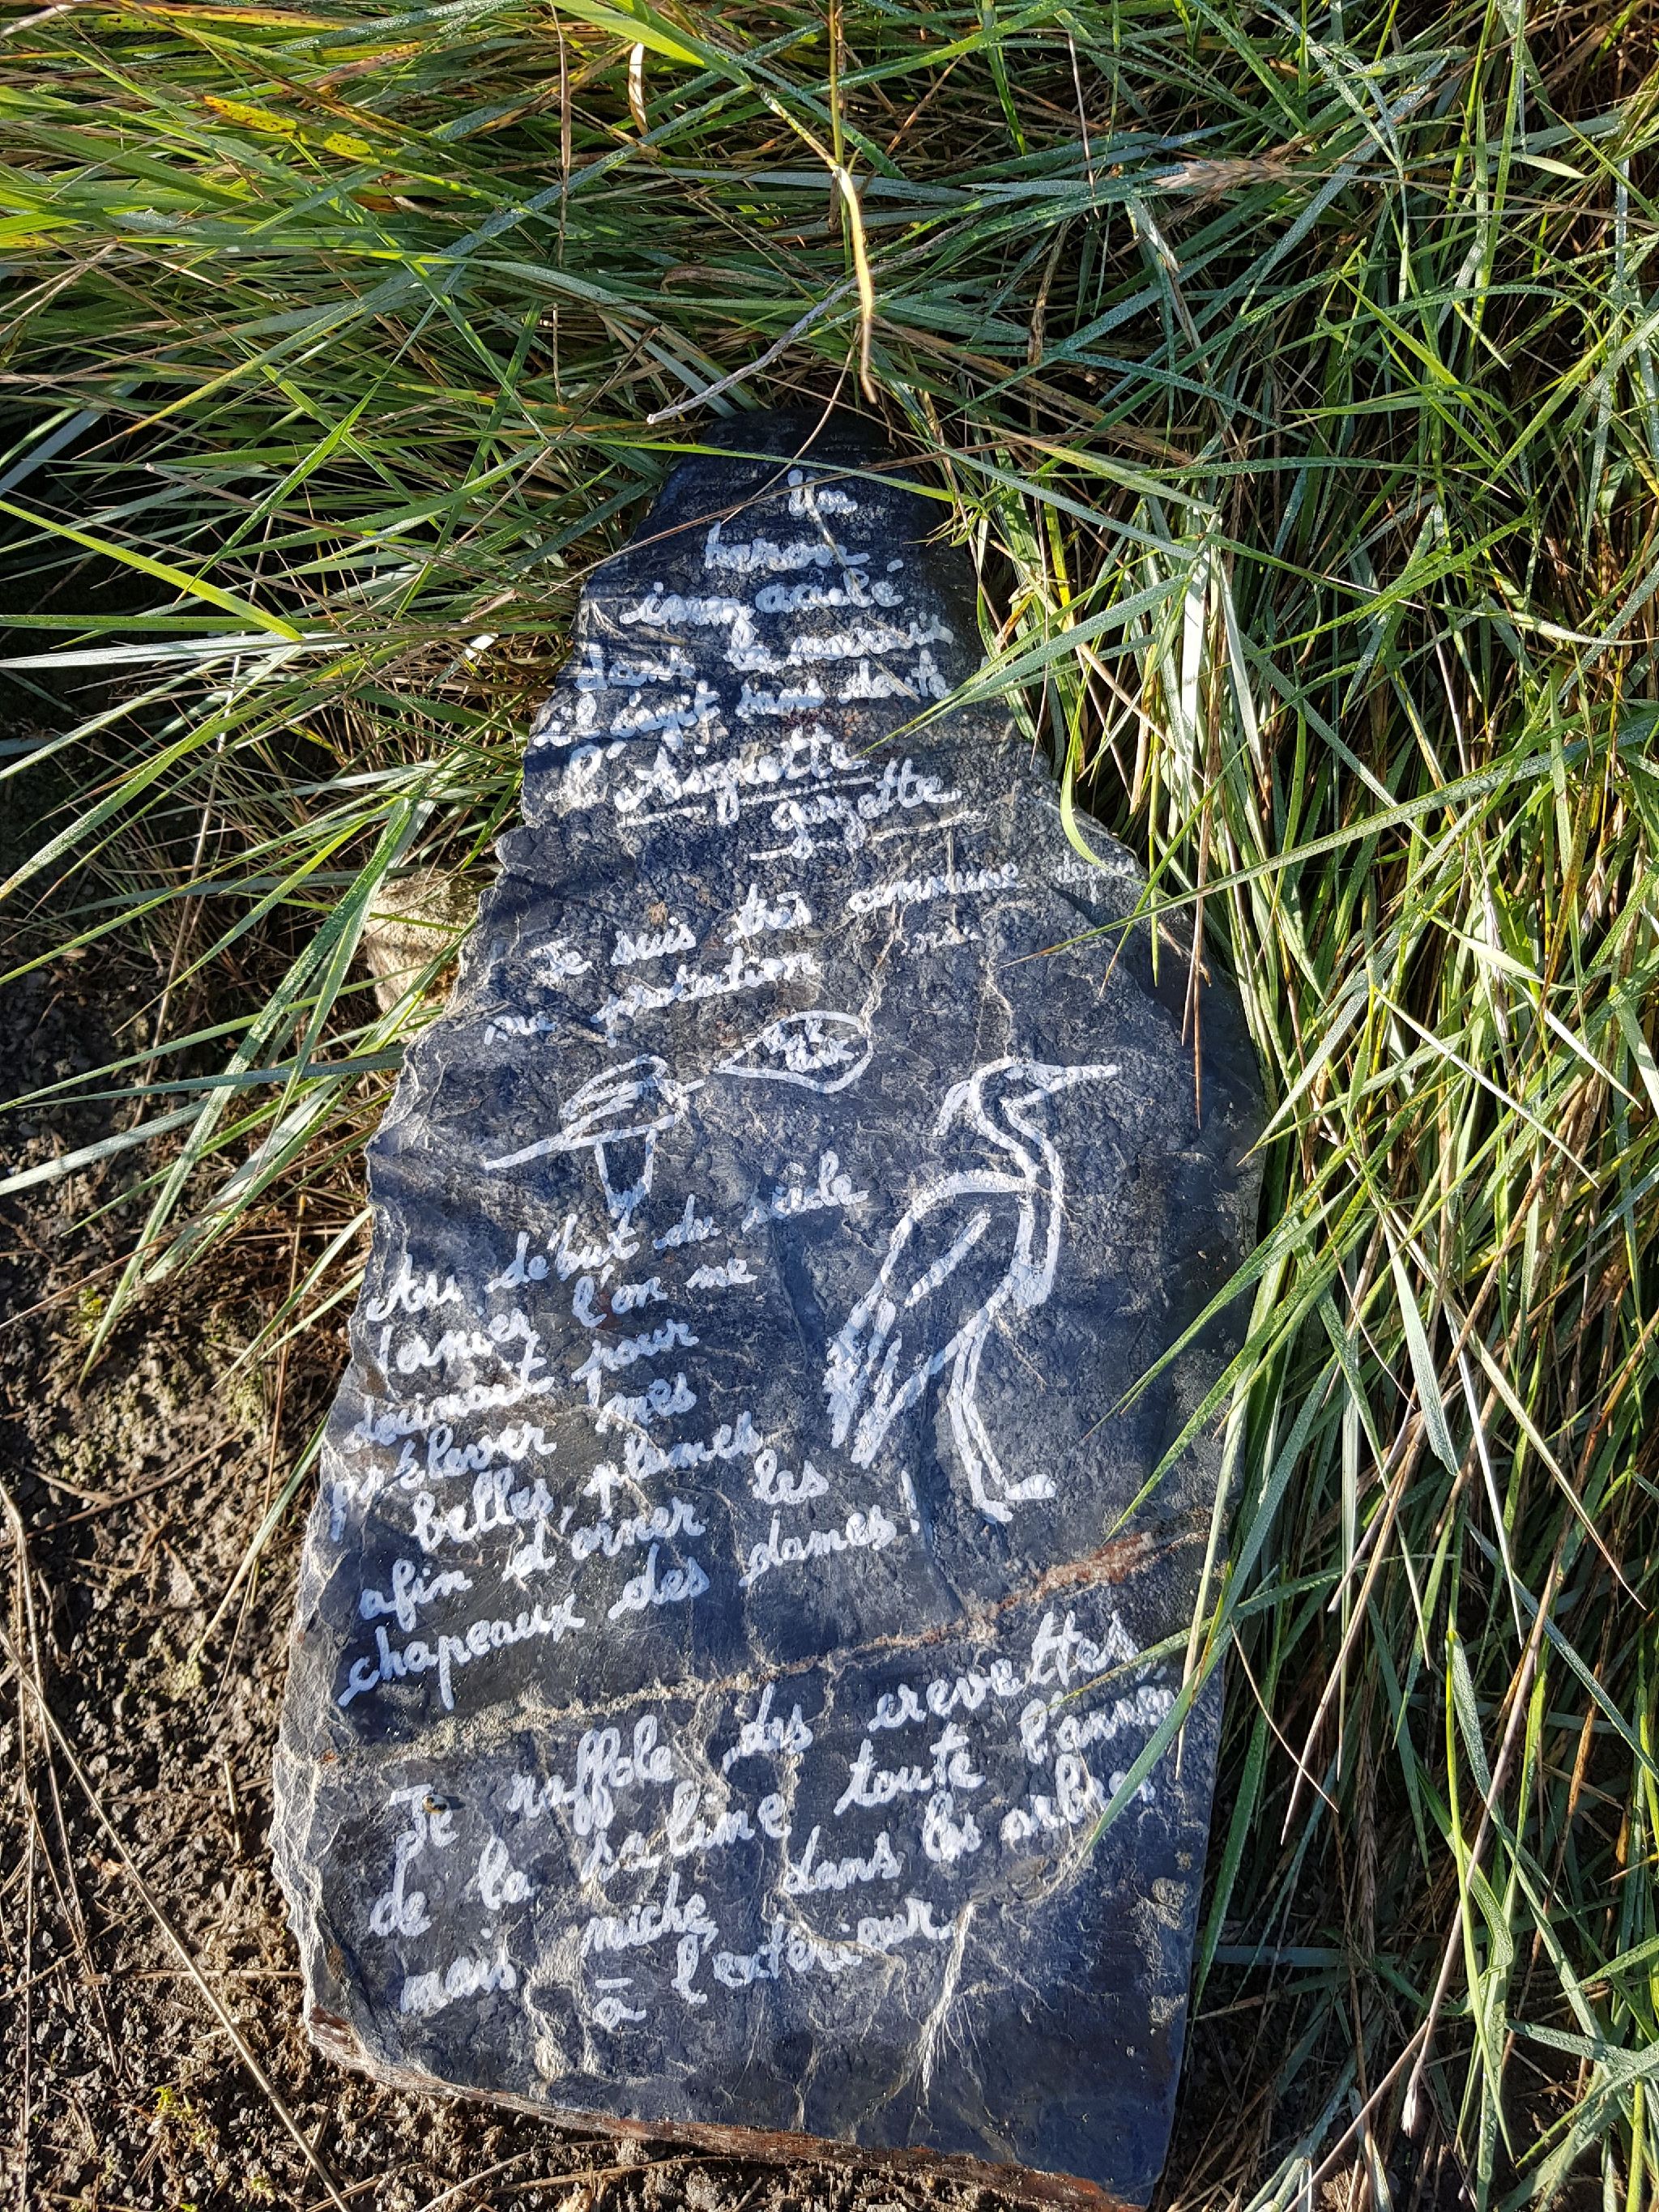 Un
heron
immaculé
dans le marais
il s'agit sans doute
d'
Aigrette
garzette
Je suis très commune depuis
ma protection
Au début du siècle
l'on me
pour
prélever mes
belles plumes
afin d'orner les
chapeaux des dames!
Je raffole des crevettes
de la saline toute l'année
mais niche dans les arbres
à l'exterieur